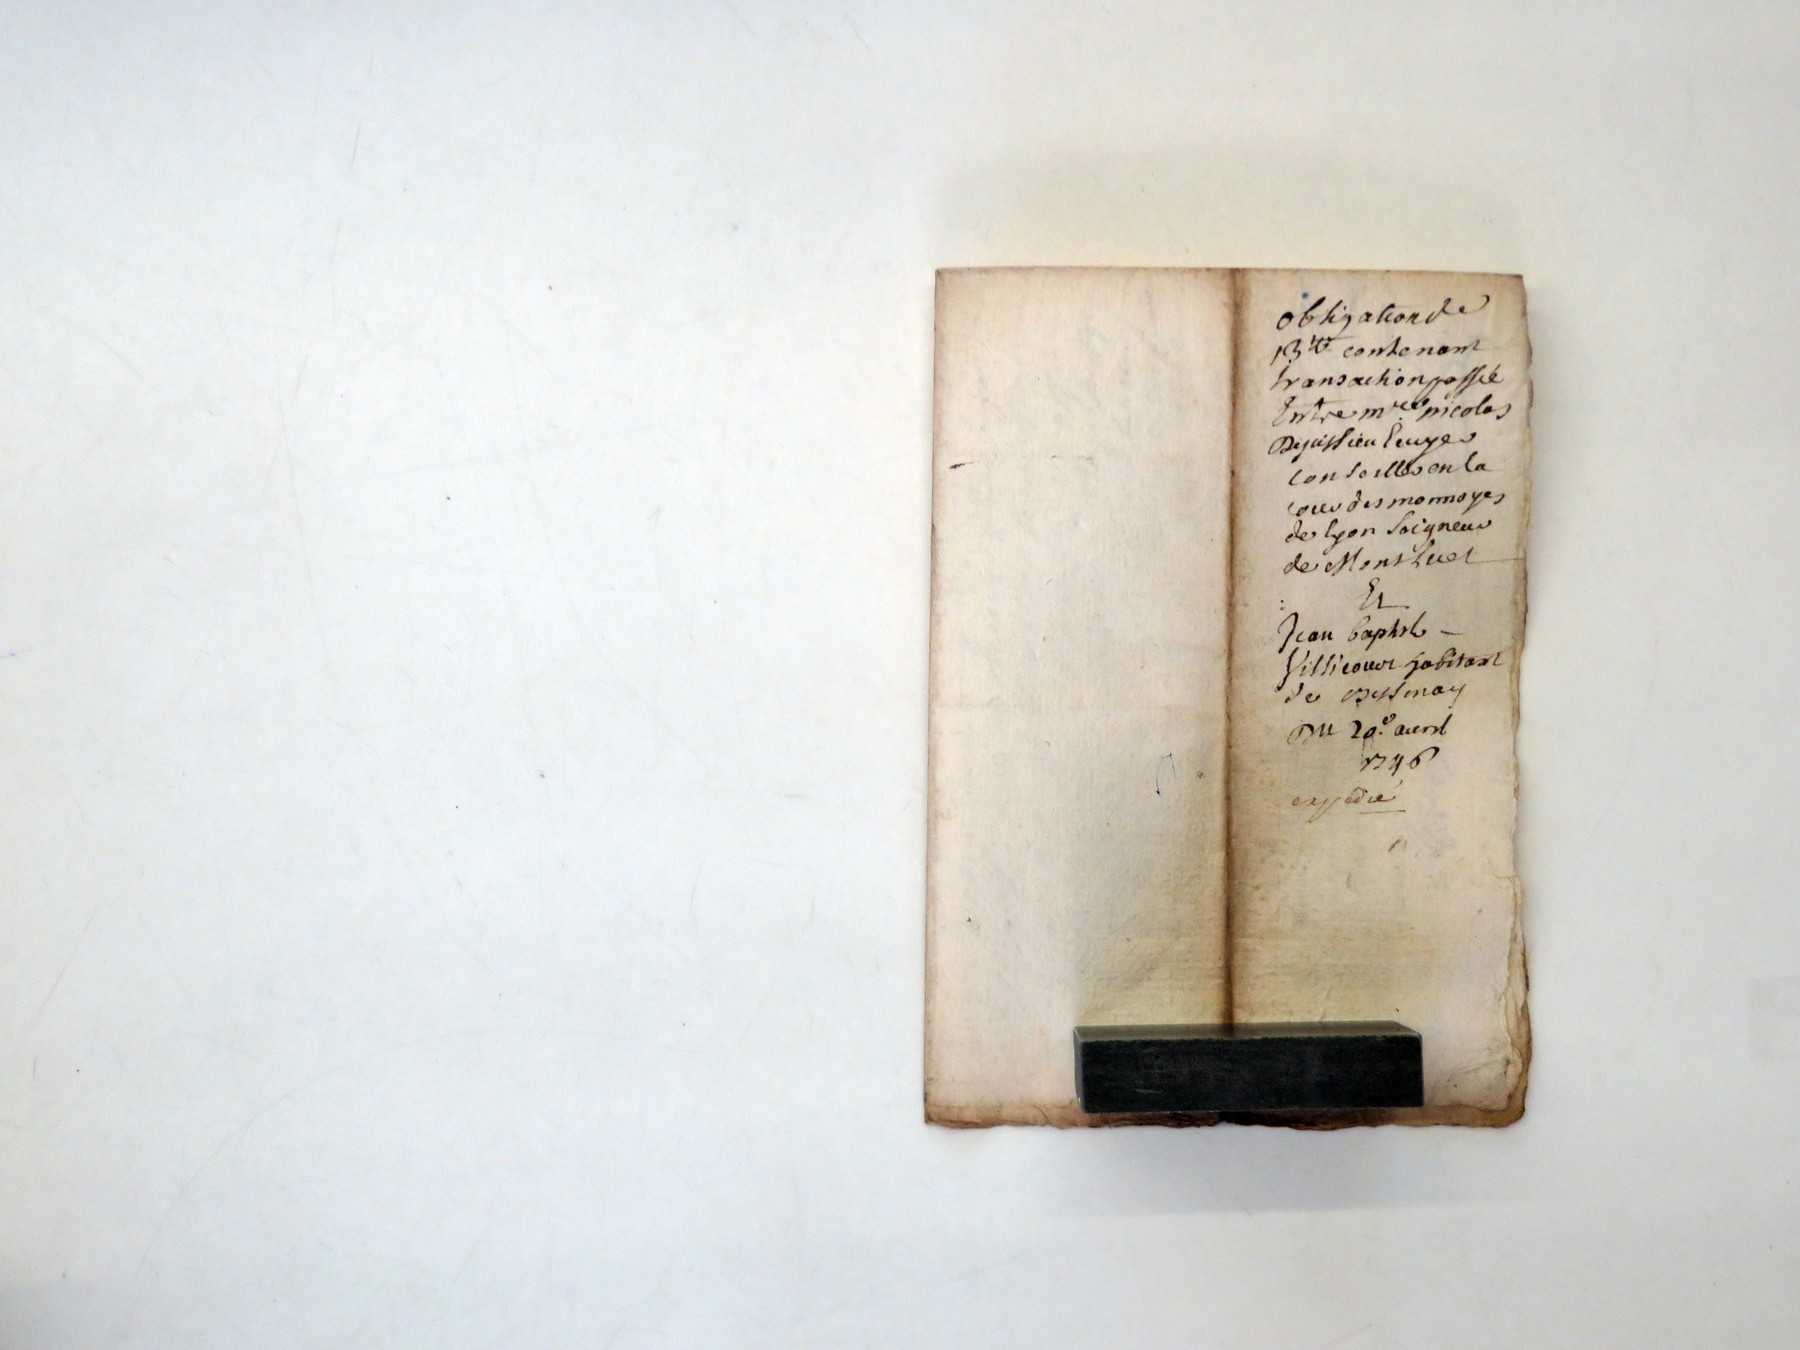 obligation de
13lt contenant
transaction passée
Entre mre nicolas
Dejussieu Ecuyer
conseiller en la
cour des monnoyes
de lyon Seigneur
de Montluel
Et
Jean baptiste
Villicourt habitant
de Bessenay
Du 29e avril
1746
expedié